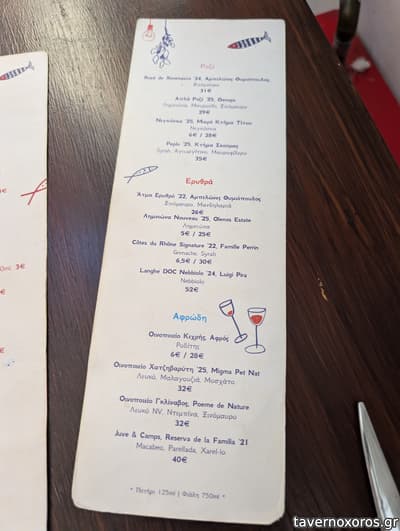 Ροζέ
Rosé de Xinomavro '24, Αμπελώνες Θυμιόπουλος
Ξινόμαυρο
31€
Απλά Ροζέ '25, Oenops
Λημνιώνα, Μαυρούδι, Ξινόμαυρο
29€
Νεγκόσκα '25, Μικρό Κτήμα Τίτου
Νεγκόσκα
6€ / 28€
Ρεμπέ '25, Κτήμα
Syrah, Αγιωργίτικο, Μαυροφίλερο
35€
Ερυθρά
Άτμα Ερυθρό '22, Αμπελώνες Θυμιόπουλος
Ξινόμαυρο, Μανδηλαριά
26€
Λημνιώνα Nouveau '25, Olenos Estate
Λημνιώνα
5€ / 25€
Côtes du Rhône Signature '22, Famille Perrin
Grenache, Syrah
6,5€ / 30€
Langhe DOC Nebbiolo '24, Luigi Pira
Nebbiolo
52€
Αφρώδη
Οινοποιείο Κεχρής, Αφρός
Ροδίτης
6€ / 28€
Οινοποιείο Χατζηβαρύτη '25, Migma Pet Nat
Λευκό, Μαλαγουζιά, Μοσχάτο
32€
Οινοποιείο Γκλίναβος, Poeme de Nature
Λευκό NV, Ντεμπίνα, Ξινόμαυρο
32€
Juve & Camps, Reserva de la Familia '21
Macabeo, Parellada, Xarel-lo
40€
* Ποτήρι 125ml | Φιάλη 750ml *
3€
tavernoxoros.gr